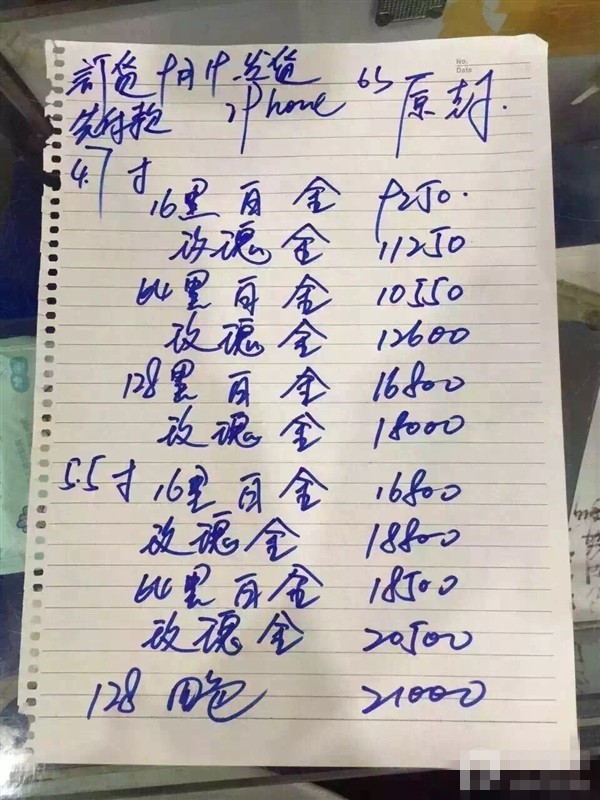 訂货 9月19发货
No.
Date
先付款 iPhone 6S 原封.
4.7寸
16黑白金 9250.
玫瑰金 11250
64黑白金 10550
玫瑰金 12600
128黑白金 16800
玫瑰金 18000
5.5寸 16黑白金 16800
玫瑰金 18800
64黑白金 18500
玫瑰金 20500
128 四色 21000